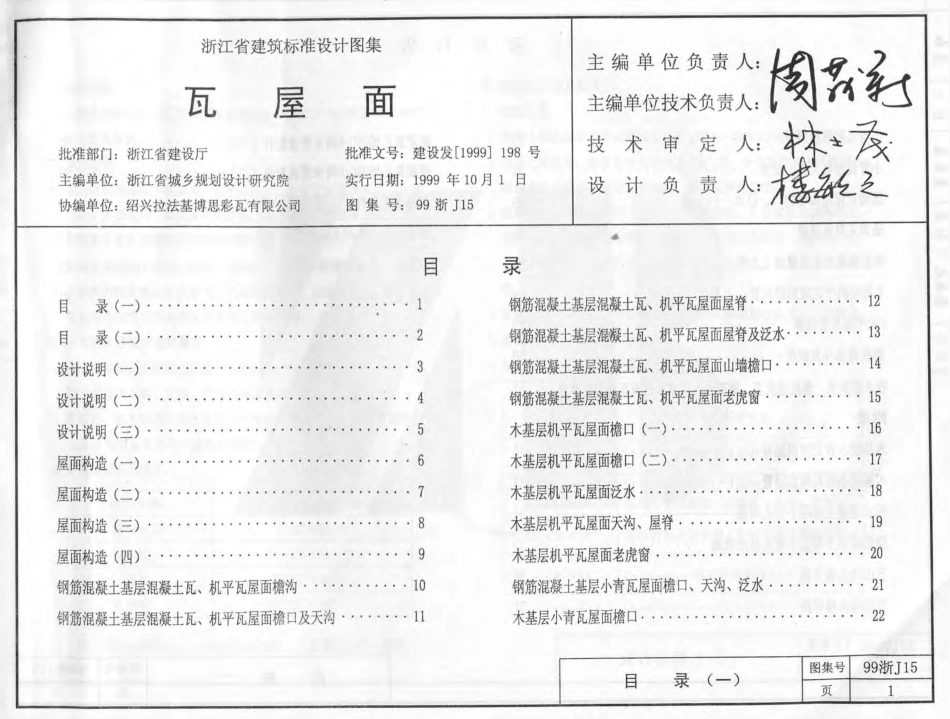 浙江省建筑标准设计图集
瓦 屋 面
批准部门：浙江省建设厅
主编单位：浙江省城乡规划设计研究院
协编单位：绍兴拉法基博思彩瓦有限公司
批准文号：建设发[1999] 198 号
实行日期：1999 年 10 月 1 日
图 集 号：99 浙 J15
主 编 单 位 负 责 人：
主编单位技术负责人：
技 术 审 定 人：
设 计 负 责 人：
目 录
目 录（一）·········· 1
目 录（二）·········· 2
设计说明（一）·········· 3
设计说明（二）·········· 4
设计说明（三）·········· 5
屋面构造（一）·········· 6
屋面构造（二）·········· 7
屋面构造（三）·········· 8
屋面构造（四）·········· 9
钢筋混凝土基层混凝土瓦、机平瓦屋面檐沟·········· 10
钢筋混凝土基层混凝土瓦、机平瓦屋面檐口及天沟·········· 11
钢筋混凝土基层混凝土瓦、机平瓦屋面屋脊·········· 12
钢筋混凝土基层混凝土瓦、机平瓦屋面屋脊及泛水·········· 13
钢筋混凝土基层混凝土瓦、机平瓦屋面山墙檐口·········· 14
钢筋混凝土基层混凝土瓦、机平瓦屋面老虎窗·········· 15
木基层机平瓦屋面檐口（一）·········· 16
木基层机平瓦屋面檐口（二）·········· 17
木基层机平瓦屋面泛水·········· 18
木基层机平瓦屋面天沟、屋脊·········· 19
木基层机平瓦屋面老虎窗·········· 20
钢筋混凝土基层小青瓦屋面檐口、天沟、泛水·········· 21
木基层小青瓦屋面檐口·········· 22
目 录 （一）
图集号 99浙J15
页 1